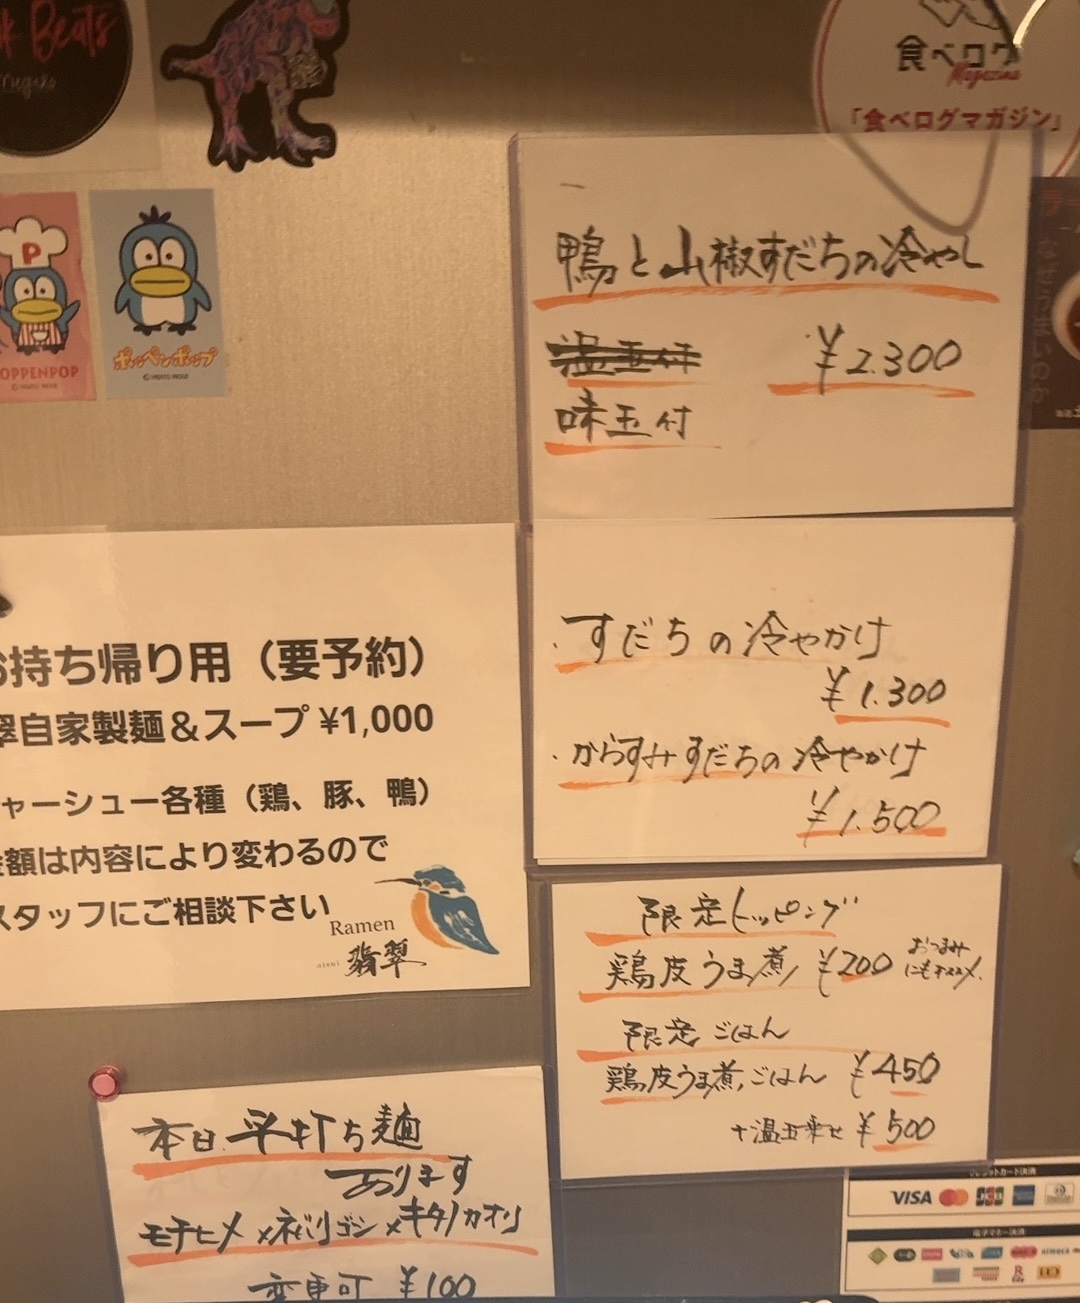 Beats
食べログ
Magazine
「食べログマガジン」
P
OPPENPOP
ポッペンポップ
鴨と山椒すだちの冷やし
温玉付
¥2.300
味玉付
なぜうまいのか
・すだちの冷やかけ
¥1.300
・からすみすだちの冷やかけ
¥1.500
お持ち帰り用（要予約）
翠自家製麺＆スープ ¥1,000
ャーシュー各種（鶏、豚、鴨）
金額は内容により変わるので
スタッフにご相談下さい
Ramen
翡翠
限定トッピング
鶏皮うま煮 ¥200 おつまみ
にもオススメ.
限定ごはん
鶏皮うま煮ごはん ¥450
+温玉乗せ ¥500
本日 平打ち麺
あります
モチヒメ×ネバリゴシ×キタノカオリ
変更可 ¥100
VISA
JCB